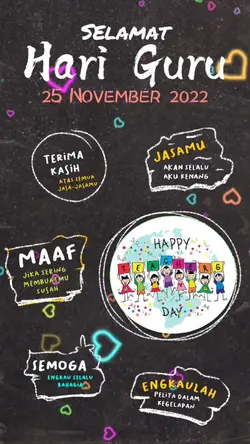 SELAMAT
Hari Guru
25 NOVEMBER 2022
TERIMA
KASIH
ATAS SEMUA
JASA-JASAMU
JASAMU
AKAN SELALU
AKU KENANG
MAAF
JIKA SERING
MEMBUATMU
SUSAH
HAPPY
TEACHERS
DAY
SEMOGA
ENGKAU SELALU
BAHAGIA
ENGKAULAH
PELITA DALAM
KEGELAPAN